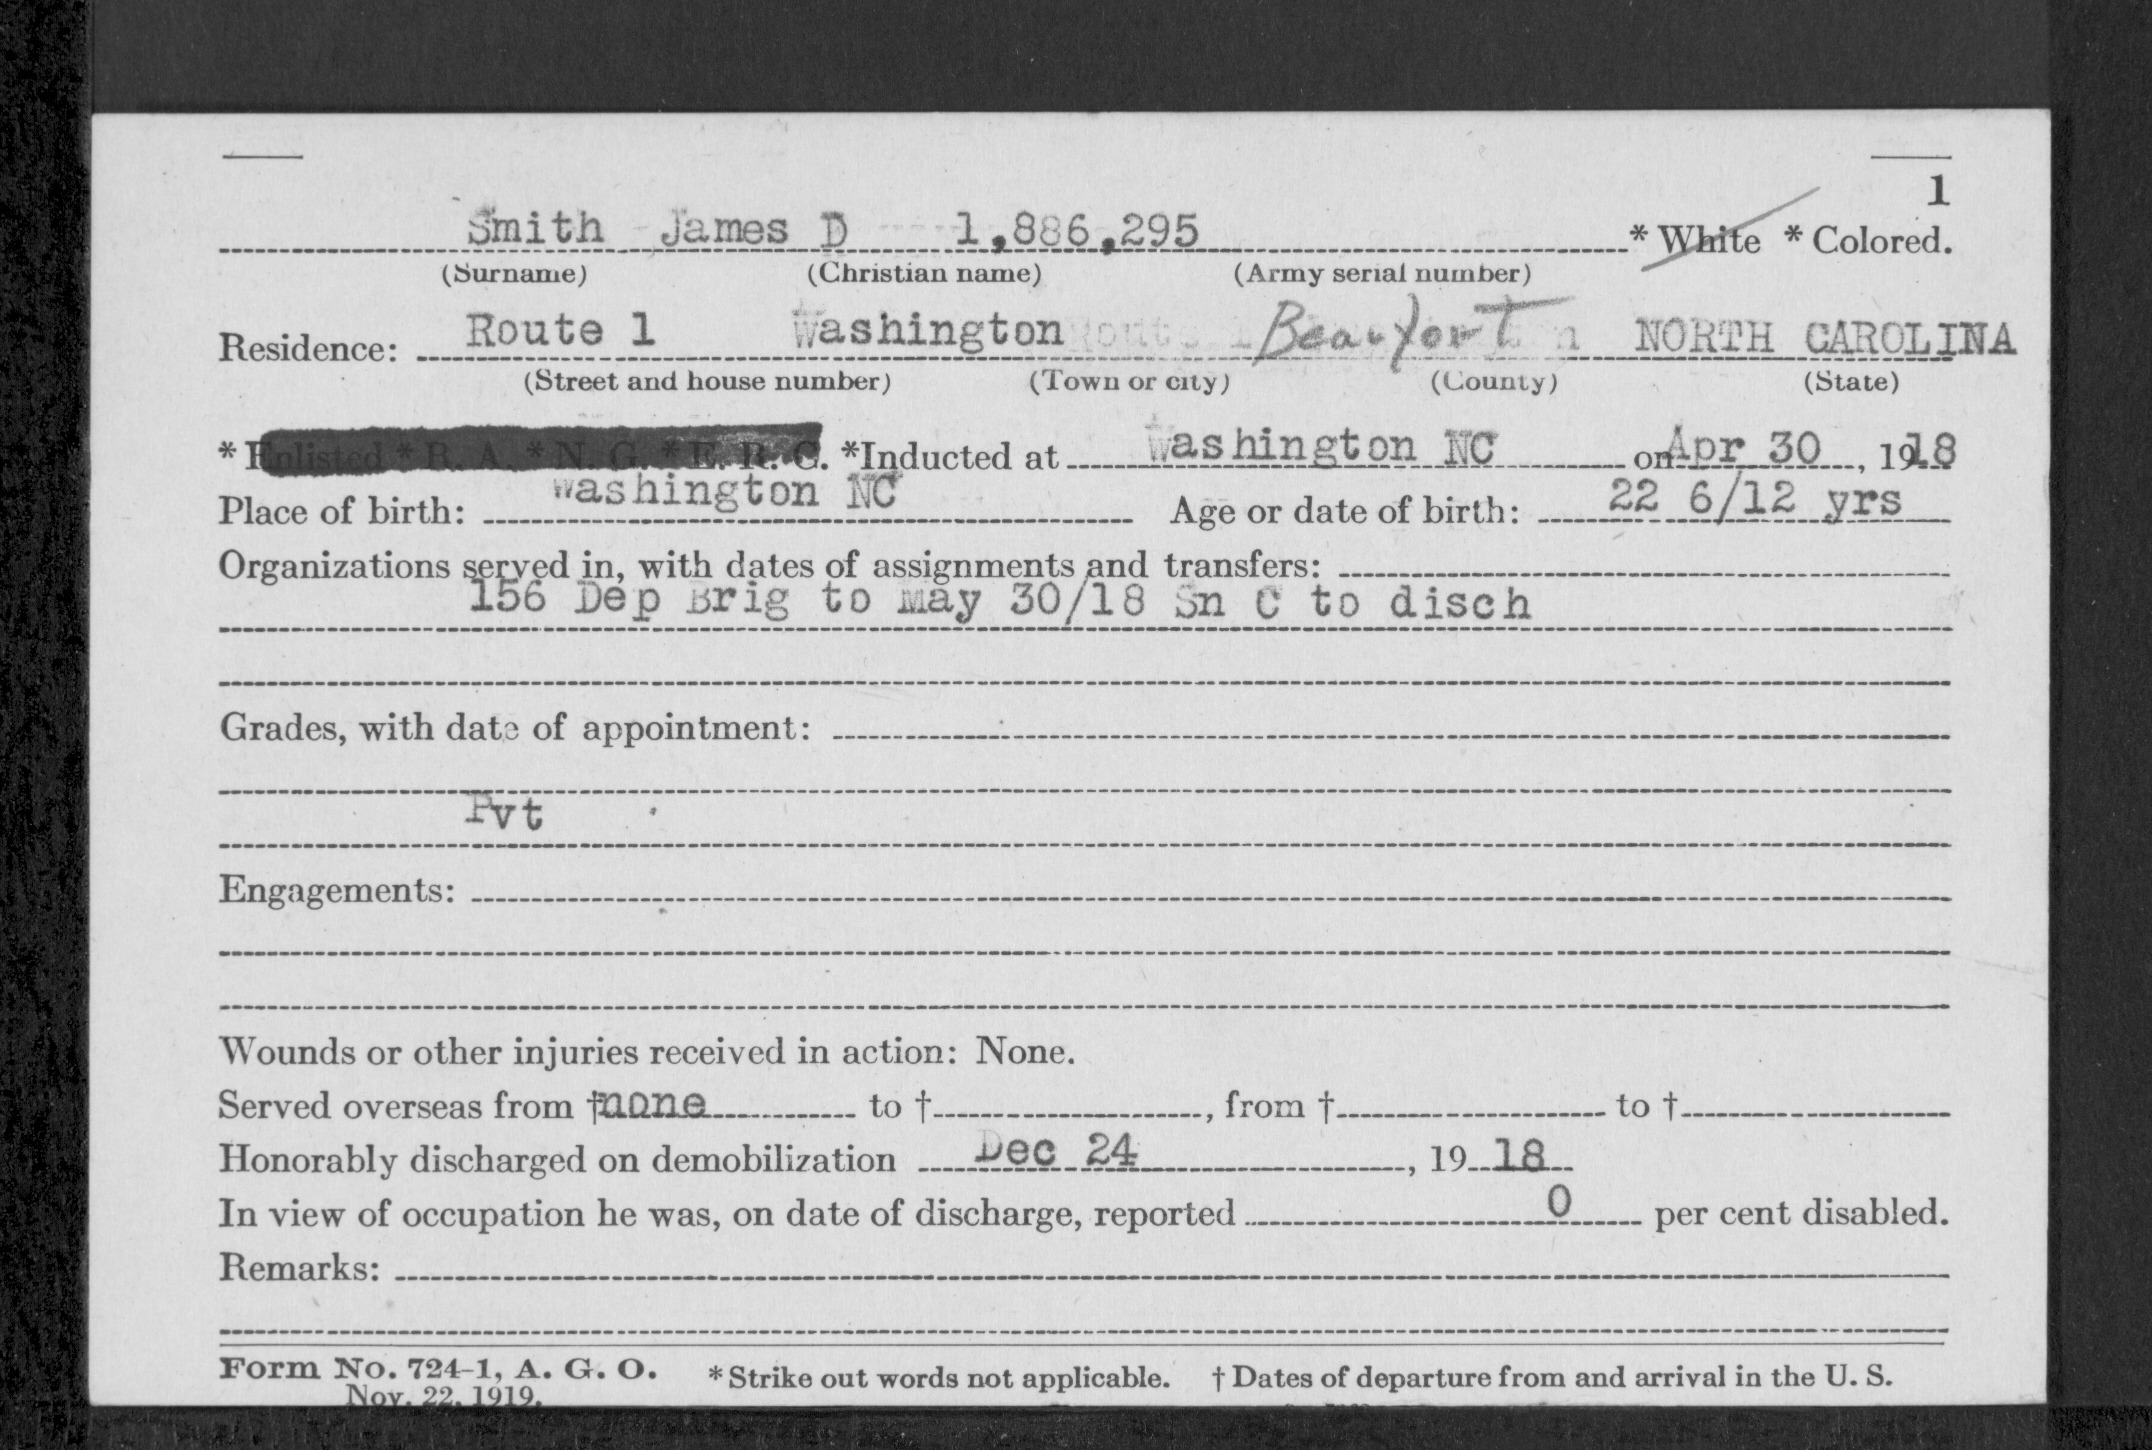 1
Smith James D 1,886,295 * White * Colored.
(Surname) (Christian name) (Army serial number)
Residence: Route 1 Washington Beaufort NORTH CAROLINA
(Street and house number) (Town or city) (County) (State)
* Enlisted * R. A. * N. G. * E. R. C. *Inducted at Washington NC on Apr 30, 1918
Place of birth: Washington NC Age or date of birth: 22 6/12 yrs
Organizations served in, with dates of assignments and transfers:
156 Dep Brig to May 30/18 Sn C to disch
Grades, with date of appointment:
Pvt
Engagements:
Wounds or other injuries received in action: None.
Served overseas from †none to †, from † to †
Honorably discharged on demobilization Dec 24, 19 18
In view of occupation he was, on date of discharge, reported 0 per cent disabled.
Remarks:
Form No. 724-1, A. G. O. *Strike out words not applicable. † Dates of departure from and arrival in the U. S.
Nov. 22, 1919.